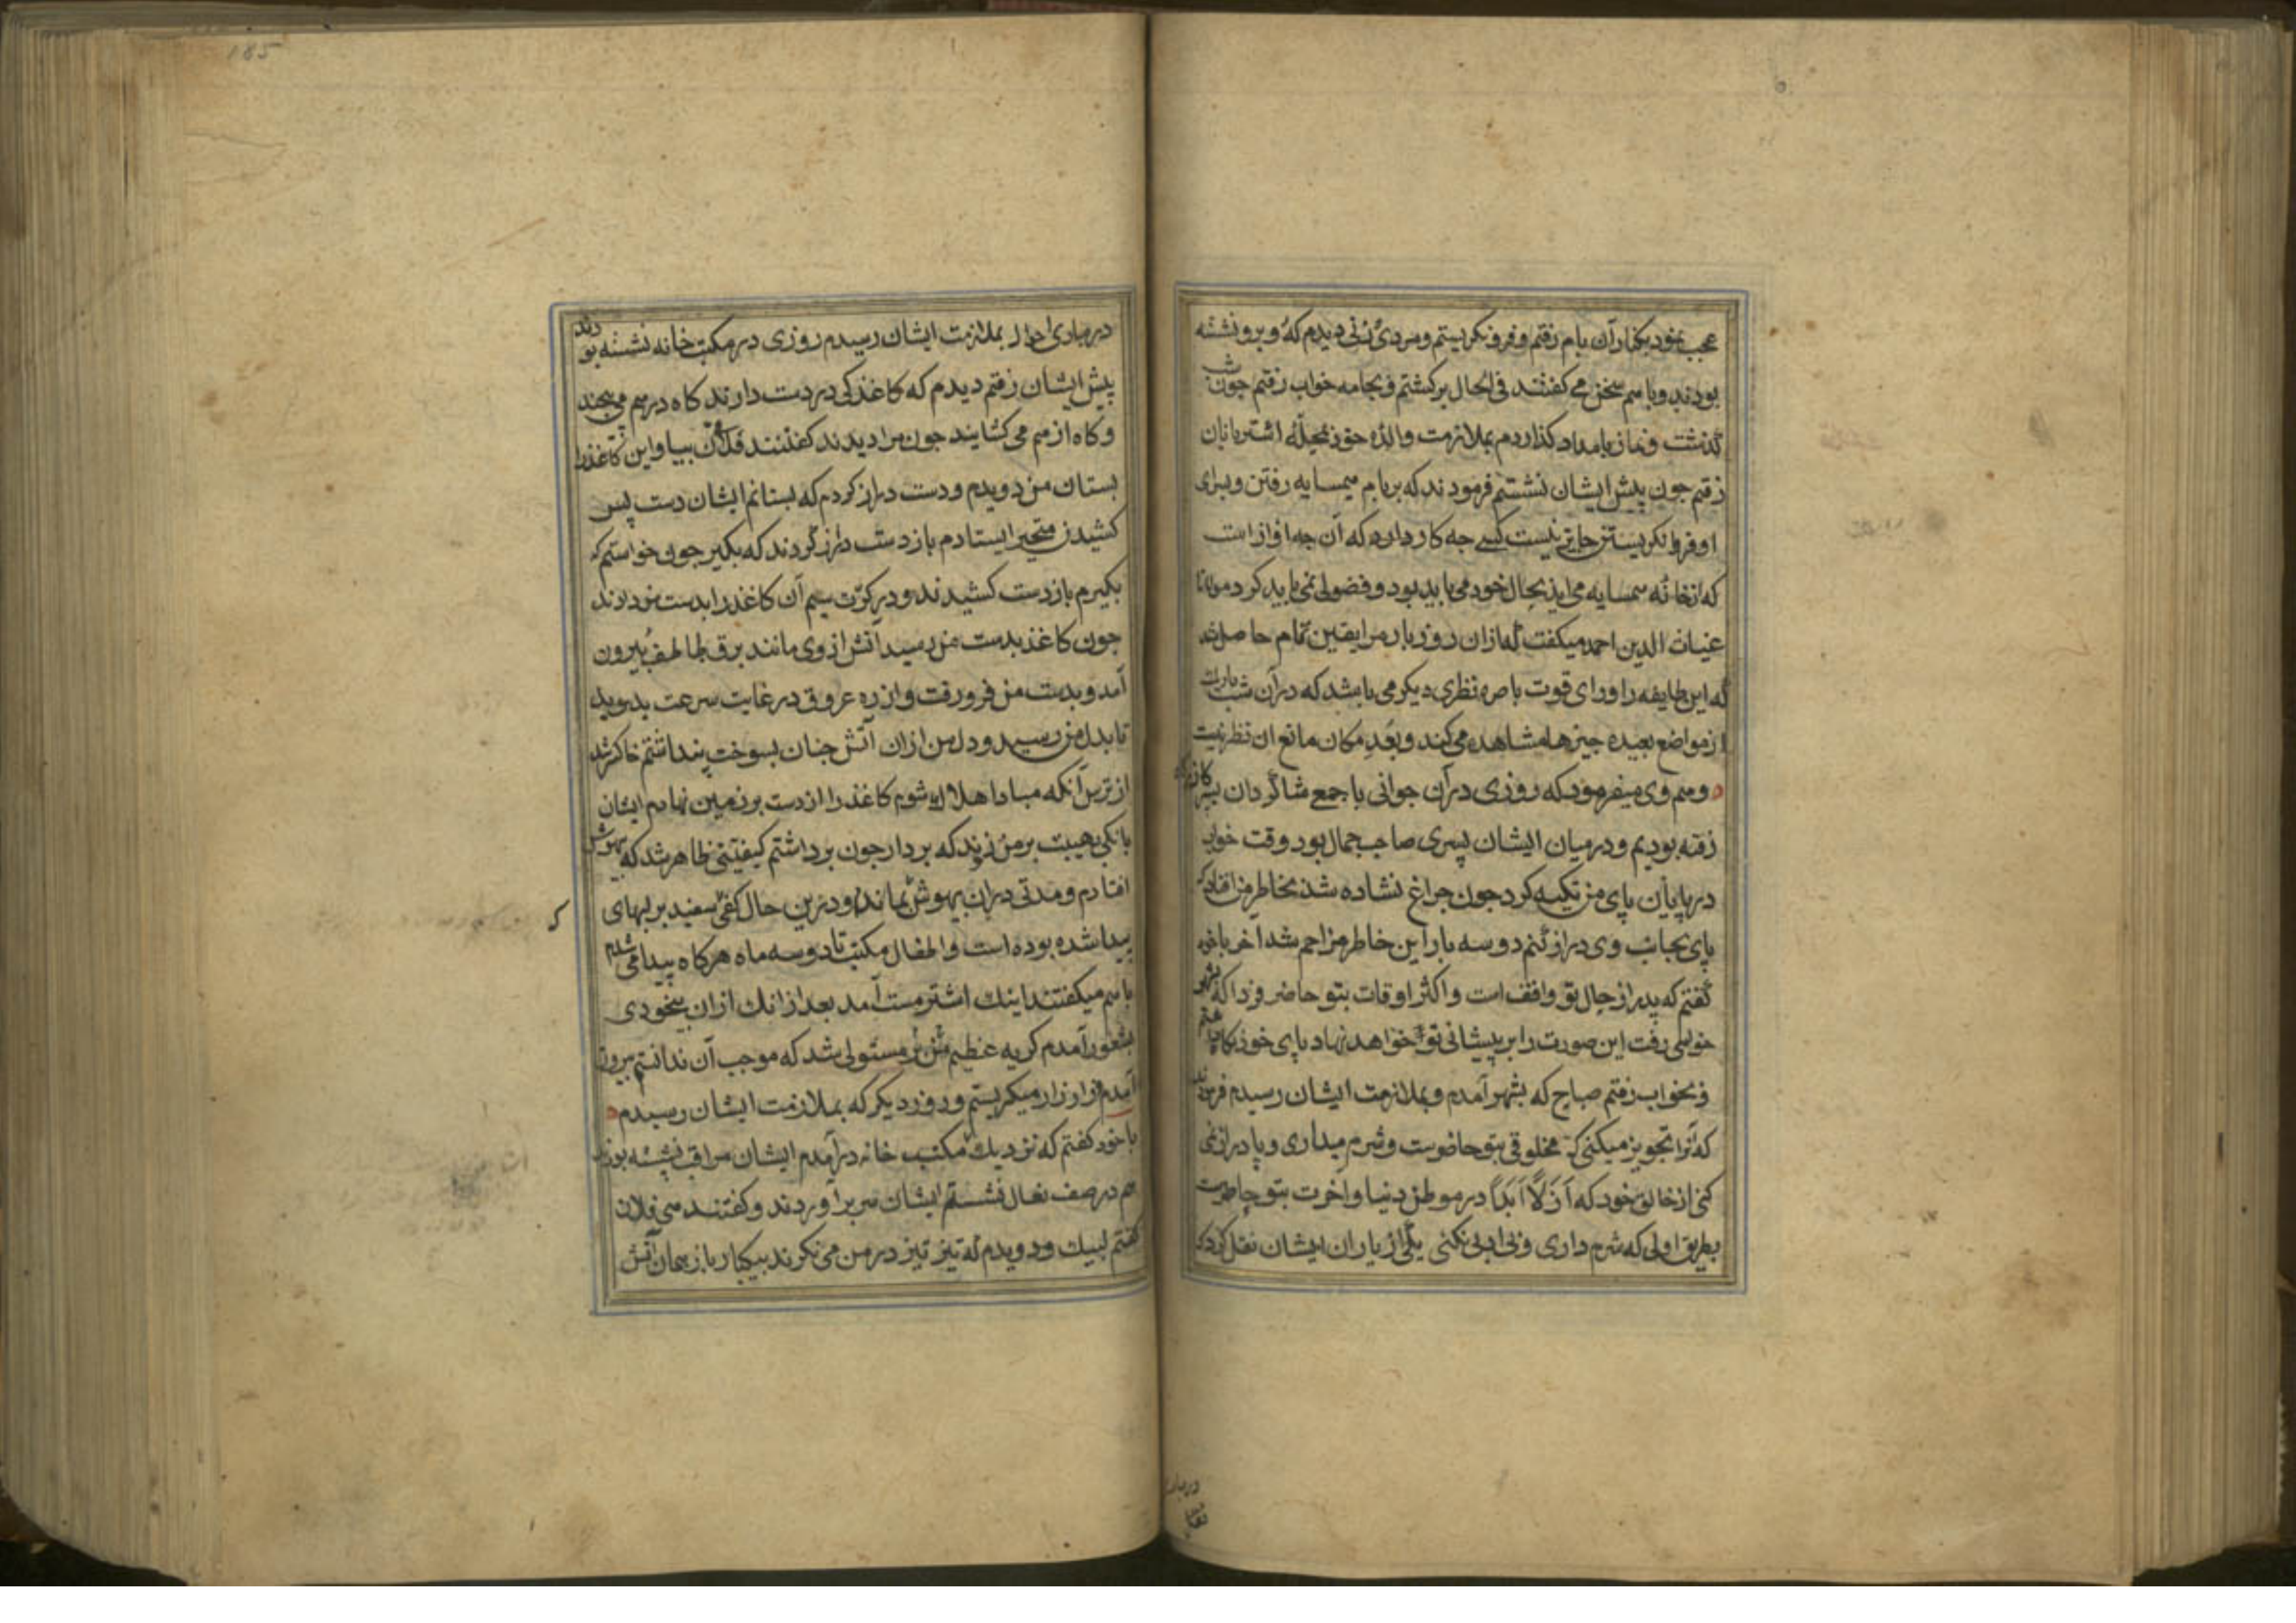 عجب نمود بکنار آن بام رفتم و فرو نکریستم ومردی زنی دیدم که و برو نشسته
بودند وباسم سخن می کفتند فی الحال برکشتم و بجامه خواب رفتم جون شب
کذشت و نماز بامداد کذاردم بملازمت والده خود بمحله اشتربانان
رفتم جون پیش ایشان نشستم فرمودند که بر بام میسایه رفتن و برای
او فرو نکریستن حاجت نیست کسی جه کار دارد که آن جه اواز است
که از خانه سمسایه می اید بحال خود می باید بود و فضولی نمی باید کرد مولانا
غیاث الدین احمد میکفت که ازان روز باز مرا یقین تمام حاصل شد
که این طایفه را ورای قوت باصره نظری دیکر می باشد که در آن شب تاریک
از مواضع بعیده جیزها مشاهده می کند و بعد مکان مانع ان نظر نیست
ومم وی میفرمود که روزی در آن جوانی با جمع شاکردان بسر کازرکاه
رفته بودیم و درمیان ایشان پسری صاحب جمال بود وقت خواب
در پایان پای من تکیه کرد جون جراغ نشاده شد بخاطر من افتاد که
پای بجانب وی دراز کنم دو سه بار این خاطر مزاحم شد آخر با خود
کفتم که پدر از حال تو واقف است و اکثر اوقات بتو حاضر فردا که بشهر
خواهی رفت این صورت را بر پیشانی تو خواهد نهاد پای خود نکاه داشتم
و بخواب رفتم صباح که بشهر آمدم و بملازمت ایشان رسیدم فرمودند
که آنرا تجویز میکنی که مخلوقی بتو حاضرست و شرم میداری و پا دراز نمی
کنی از خالق خود که اَزَلاً اَبَداً در موطن دنیا و آخرت بتو حاضرست
بطریق اولی که شرم داری و بی ادبی نکنی یکی از یاران ایشان نقل کرد که
در مبادی احوال بملازمت ایشان رسیدم روزی در مکتب خانه نشسته بودند
پیش ایشان رفتم دیدم که کاغذکی در دست دارند کاه در سم می پیچند
و کاه از مم می کشایند جون مرا دیدند کفتند فلان بیا و این کاغذ را
بستان من دویدم و دست دراز کردم که بستانم ایشان دست پس
کشیدن متحیر ایستادم باز دست دراز کردند که بکیر جون خواستم که
بکیرم باز دست کشیدند و در کرّت سیم آن کاغذ را بدست من دادند
جون کاغذ بدست من رسید آتش از وی مانند برق خاطف بیرون
آمد و بدست من فرو رفت و از ره عروق در غایت سرعت بدوید
تا بدل من رسید و دل من ازان آتش جنان بسوخت پنداشتم خاکستر شد
از ترس آنکه مبادا هلاک شوم کاغذ را از دست بر زمین نهادم ایشان
بانکی بهیبت بر من زدند که بردار جون برداشتم کیفیتی ظاهر شد که بیهوش
افتادم و مدتی در ان بیهوش بماندم و درین حال کفی سفید بر لبهای
پیدا شده بوده است و اطفال مکتب تا دو سه ماه هرکاه پیدا می شدم
باسم میکفتند اینک اشتر مست آمد بعد از انک ازان بیخودی
بشعور آمدم کریه عظیم بر من مستولی شد که موجب آن ندانستم بیرون
آمدم و زار زار میکریستم و روز دیکر که بملازمت ایشان رسیدم
با خود کفتم که نزدیک مکتب خانه درآمدم ایشان مراقب نشسته بودند
مم در صف نعال نشستم ایشان سر برآوردند و کفتند می فلان
کفتم لبیک و دویدم که تیز تیز در من می نکرند بیکبار باز همان آتش